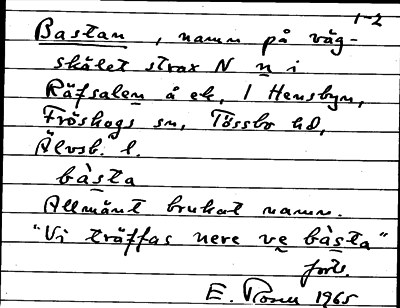 1-2
Bastan, namn på väg-
skälet strax N n i
Räfsalen å ek. 1 Hensbyn,
Fröskogs sn, Tössbo hd,
Älvsb. l.
bàsta
Allmänt brukat namn.
"Vi träffas nere ve bàsta"
forts.
E. Rosen 1965